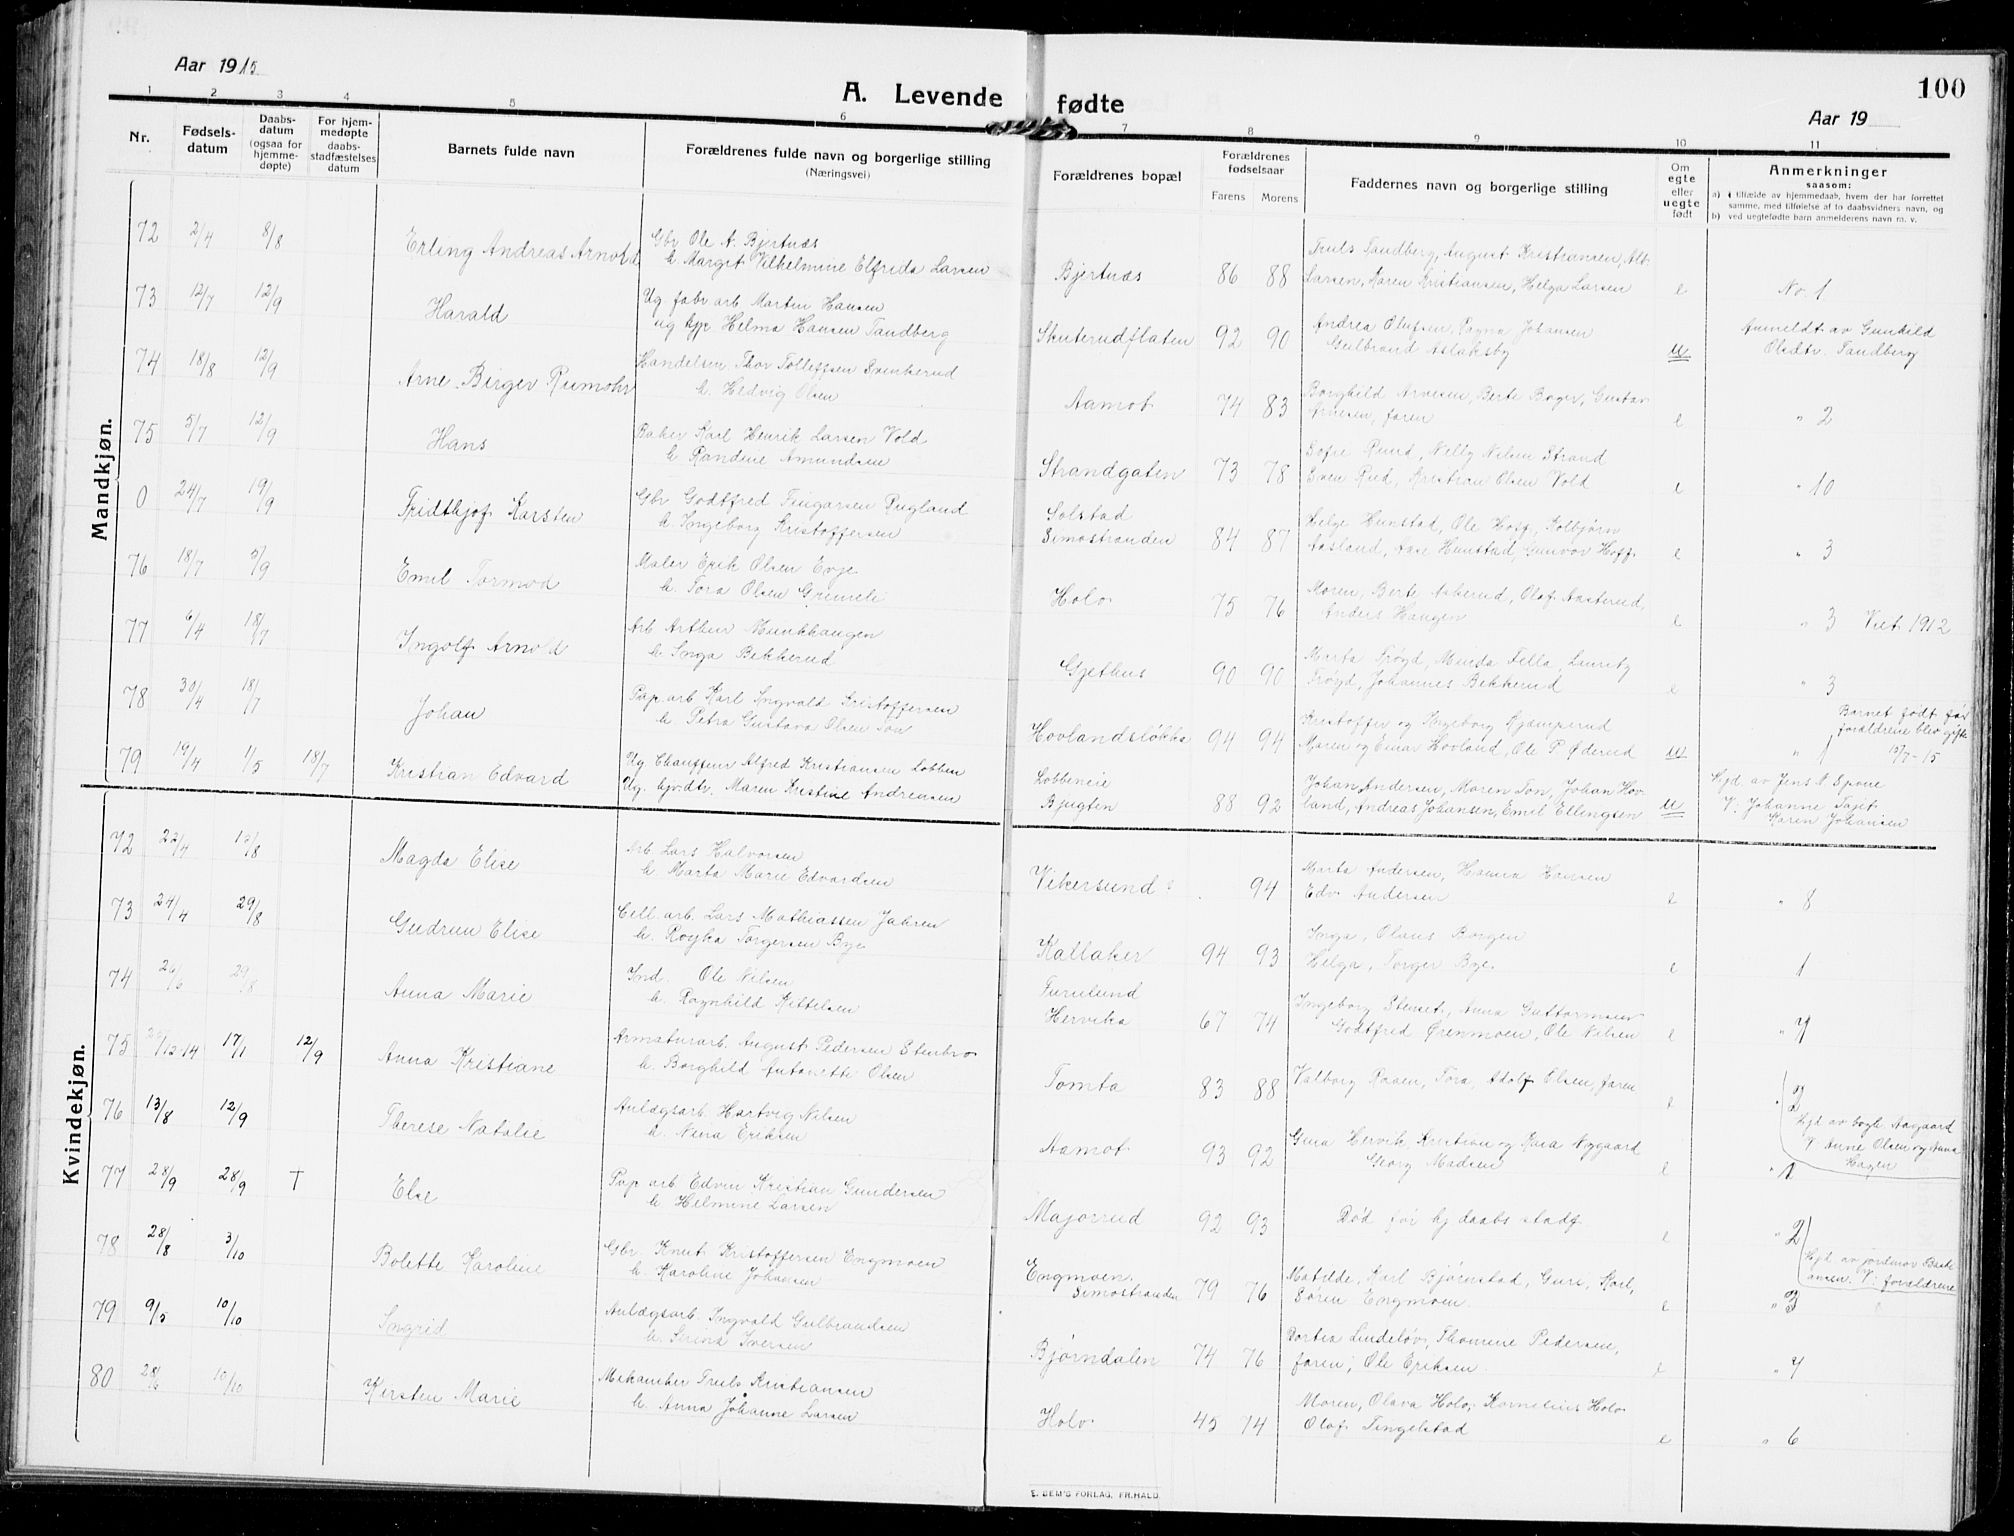 Aar 1915
A. Levende fødte
100
Aar 19
1 2 3 4 5 6 7 8 9 10 11
Nr.
Fødsels-
datum
Daabs-
datum
(ogsaa for
hjemme-
døpte)
For hjem-
medøpte
daabs-
stadfæstelses
datum
Barnets fulde navn
Forældrenes fulde navn og borgerlige stilling
(Næringsvei)
Forældrenes bopæl
Forældrenes
fødselsaar
Farens Morens
Faddernes navn og borgerlige stilling
Om
egte
eller
uegte
født
Anmerkninger
saasom:
a) i tilfælde av hjemmedaab, hvem der har forrettet
samme, med tilføielse af to daabsvidners navn, og
b) ved uegtefødte barn anmelderens navn m. v.
Mandkjøn.
72 2/4 8/8 Erling Andreas Arnold
Gbr Ole A. Bjertnæs
h. Margit Vilhelmine Elfrida Larsen
Bjertnæs 86 88
Truls Tandberg, August Kristiansen, Alb.
Larsen, Karen Kristiansen, Helga Larsen
e No. 1
73 12/7 12/9 Harald
Ug. fabr arb Martin Hansen
ug hjp. Helma Hansen Tandberg
Skuterudflaten 92 90
Andrea Olufsen, Ragna Johansen
Gulbrand Aslaksby
u
Anmeldt av Gunhild
Olsdtr. Tandberg
74 18/8 12/9 Arne Birger Rumohr
Handelsm. Thov Tollefsen Svenkerud
h. Hedvig Olsen
Aamot 74 83
Borghild Arnesen, Berte Boger, Gustav
Arnesen, faren
e " 2
75 5/7 12/9 Hans
Baker Karl Henrik Larsen Vold
h Randine Amundsen
Strandgaten 73 78
Sofie Ruud, Nelly Nilsen Strand
Sven Rud, Kristian Olsen Vold
e " 10
0 24/7 19/9 Fridthjof Karsten
Gbr Godtfred Fingarsen Rugland
h. Ingeborg Kristoffersen
Solstad
Simostranden 84 87
Helge Hunstad, Ole Hoff, Kolbjørn
Aasland, Aase Hunstad, Gunvor Hoff
e " 3
76 18/7 5/9 Emil Tormod
Maler Erik Olsen Evje
h. Tora Olsen Grimeli
Holo 75 76
Moren, Berte Aaberud, Olof Aasterud,
Anders Haugen
e " 3 Viet 1912
77 6/4 18/7 Ingolf Arnold
Arb Arthur Munkhaugen
h. Inga Bekkerud
Gjethus 90 90
Marta Frøyd, Minda Fella, Lauritz
Frøyd, Johannes Bekkerud
e " 3
78 30/4 18/7 Johan
Pap. arb Karl Ingvald Kristoffersen
h. Petra Gustava Olsen Ton
Hovlandsløkka 94 94
Kristoffer og Ingeborg Kjæmperud
Maren og Einar Hovland, Ole P. Øderud
u " 1
Barnet født før
forældrene blev gift
79 19/4 1/5 18/7 Kristian Edvard
Ug. Chauffeur Alfred Kristiansen Lobben
Ug. hjv.dtr. Maren Kristine Andreasen
Lobbeneie
Bjugten 88 92
Johan Andersen, Moren Ton, Johan Hov-
land, Andreas Johansen, Emil Ellingsen
u
Hjd. av Jens N. Spone
V: Johanne Tajet
Karen Johansen
Kvindekjøn.
72 22/4 Magda Elise
Arb. Lars Halvorsen
h. Marta Marie Edvardsen
Vikersund 94
Marta Andersen, Hanna Hansen
Edv Andersen
e " 8
73 24/4 29/8 Gudrun Elise
Cell. arb. Lars Mathiassen Jahren
h. Roijka Torgersen Bye
Kallaker 94 93
Inga, Olaus Borgen
Helga, Torger Bye
e 1
74 29/8 Anna Marie
Ind. Ole Nilsen
h. Ragnhild Kittelsen
Furulund
Hervika 67 74
Ingeborg Stenset, Anna Guttormsen
Godtfred Ørenmoen, Ole Nilsen
e
75 17/1 12/9 Anna Kristiane
Armaturarb. August Pedersen Stenbro
h. Borghild Antonette Olsen
Tomta 83 88
Valborg Raaen, Tora, Adolf Olsen, faren
e " 2
Hjd av bogh. Aagaard
V. Anne Olsen og Anna
Hagen
76 13/8 12/9 Therese Natalie
Anlægsarb. Hartvig Nilsen
h. Nina Eriksen
Aamot 93 92
Gina Hervik, Kristian og Kaia Nygaard
Georg Madsen
e " 1
77 28/9 28/9 T Else
Pap arb Edvin Kristian Gundersen
h Helmine Larsen
Majorrud 92 93
Død før hj daabs stadf
e " 2
78 28/8 3/10 Bolette Karoline
Gbr. Knut Kristoffersen Engmoen
h. Karoline Johansen
Engmoen
Simostranden 79 76
Matilde, Karl Bjørnstad, Guri, Karl,
Søren Engmoen
e " 3
79 9/5 10/10 Ingrid
Anlægsarb. Ingvald Gulbrandsen
h. Serina Iversen
Bjørndalen 74 76
Dortea Lindeløv, Thomine Pedersen,
faren, Ole Eriksen
e
80 28/6 10/10 Kirsten Marie
Mekaniker Truls Kristiansen
h. Anna Johanne Larsen
Holo 45 74
Moren, Olava Holo, Kornelius Holo
Olaf Tingelstad
e " 6
E. SEM'S FORLAG, FR.HALD.